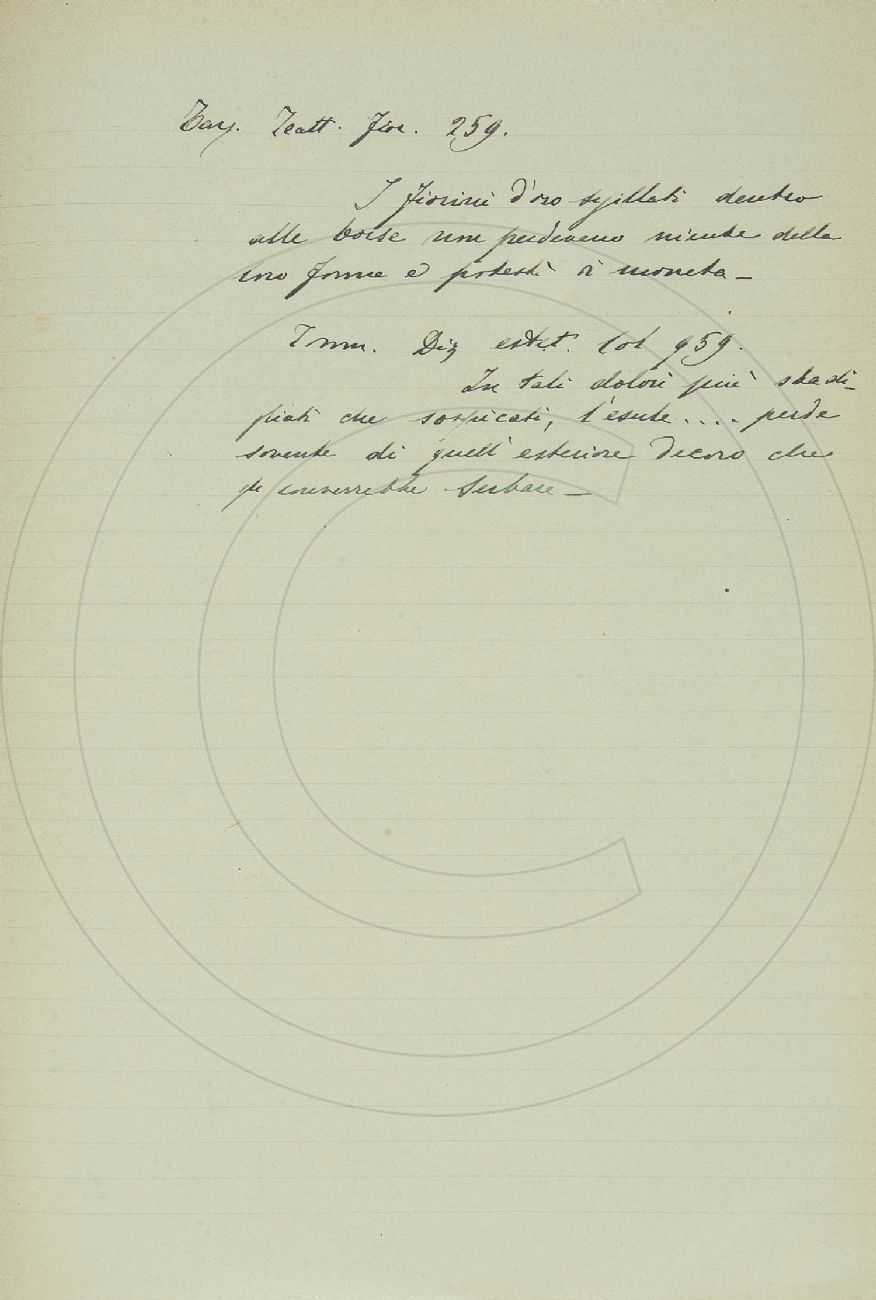 Targ. Teatt. Fior. 259.
I fiorini d'oro sigillati dentro
alle borse non perdevano niente della
loro forma e potestà di moneta —
Tomm. Diz estet. col 959.
In tali dolori più sbadi-
gliati che sospirati, l'esule .... perde
sovente di quell'esteriore decoro che
gli converrebbe serbare —